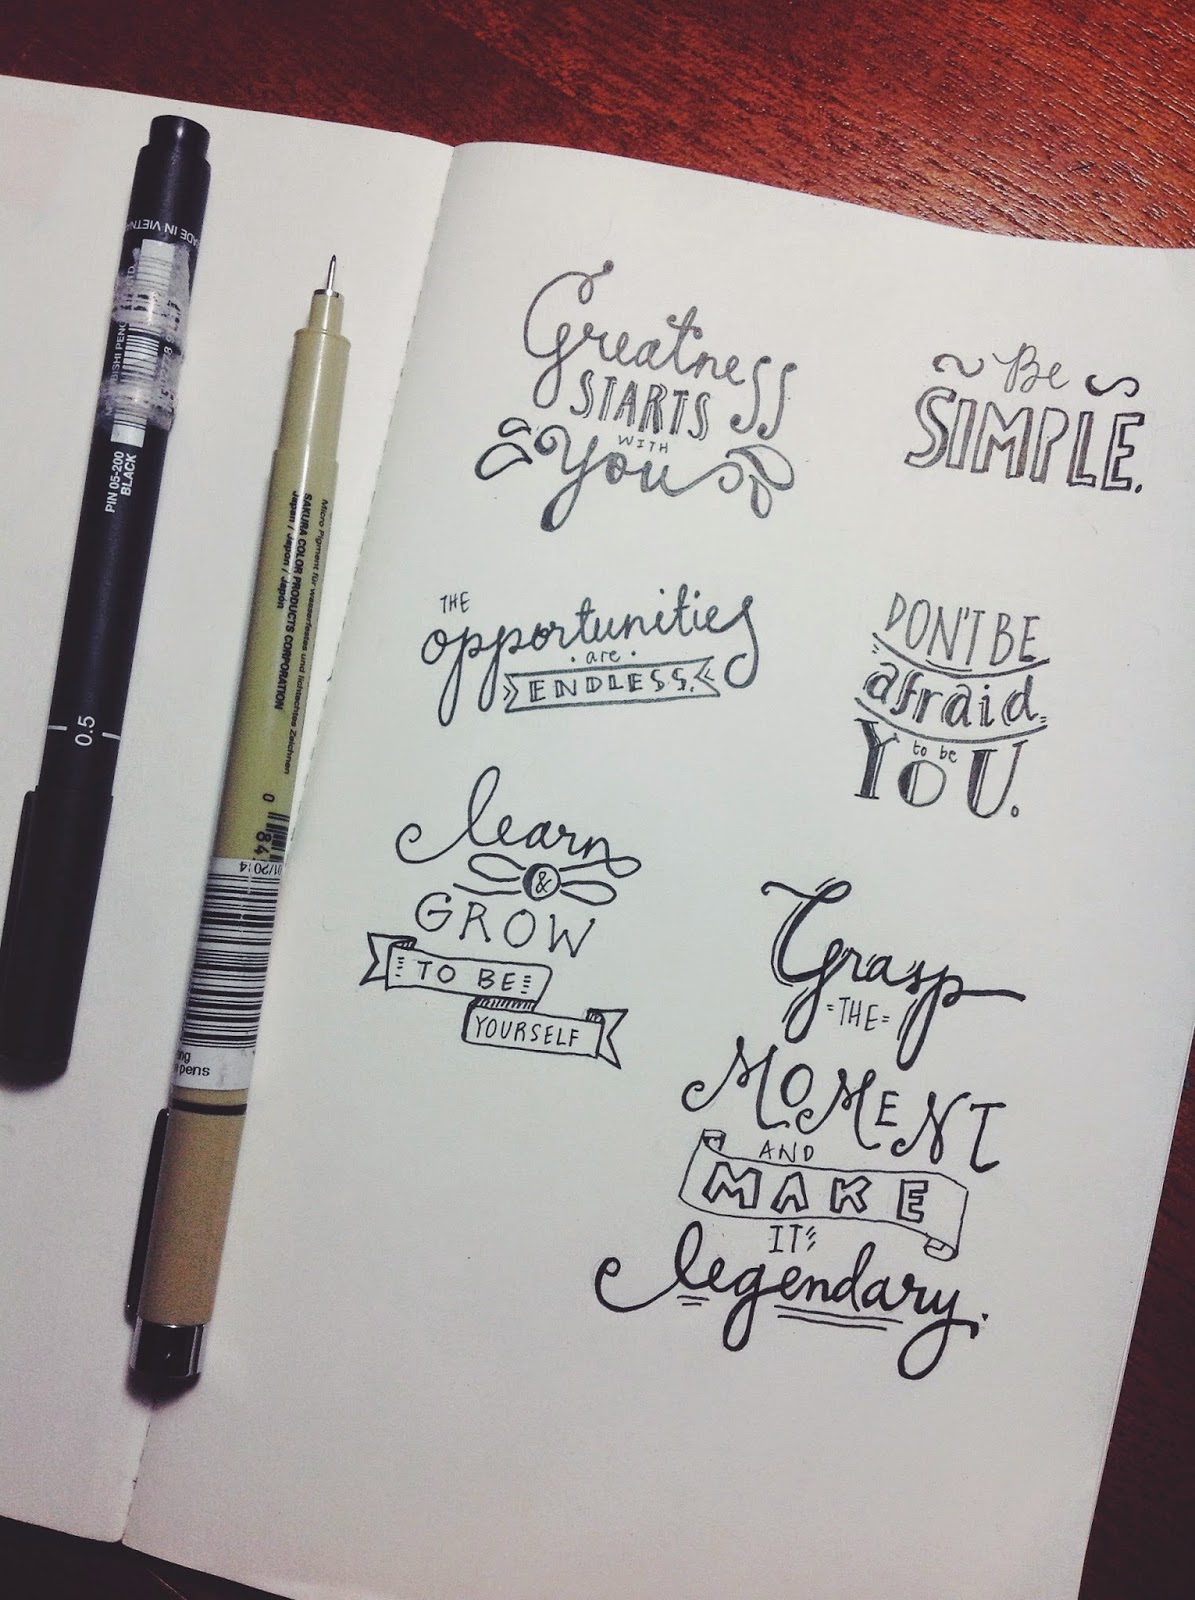 Greatness
STARTS
WITH
You
Be
SIMPLE.
THE
opportunities
are
ENDLESS.
DON'T BE
afraid
to be
YOU.
learn
&
GROW
TO BE
YOURSELF
Grasp
THE
MOMENT
AND
MAKE
IT
legendary.
PIN 05-200
BLACK
0.5
Micro Pigment für wasserfestes und lichtechtes Zeichnen
SAKURA COLOR PRODUCTS CORPORATION
Japan / Japon / Japón
01/2014
pens